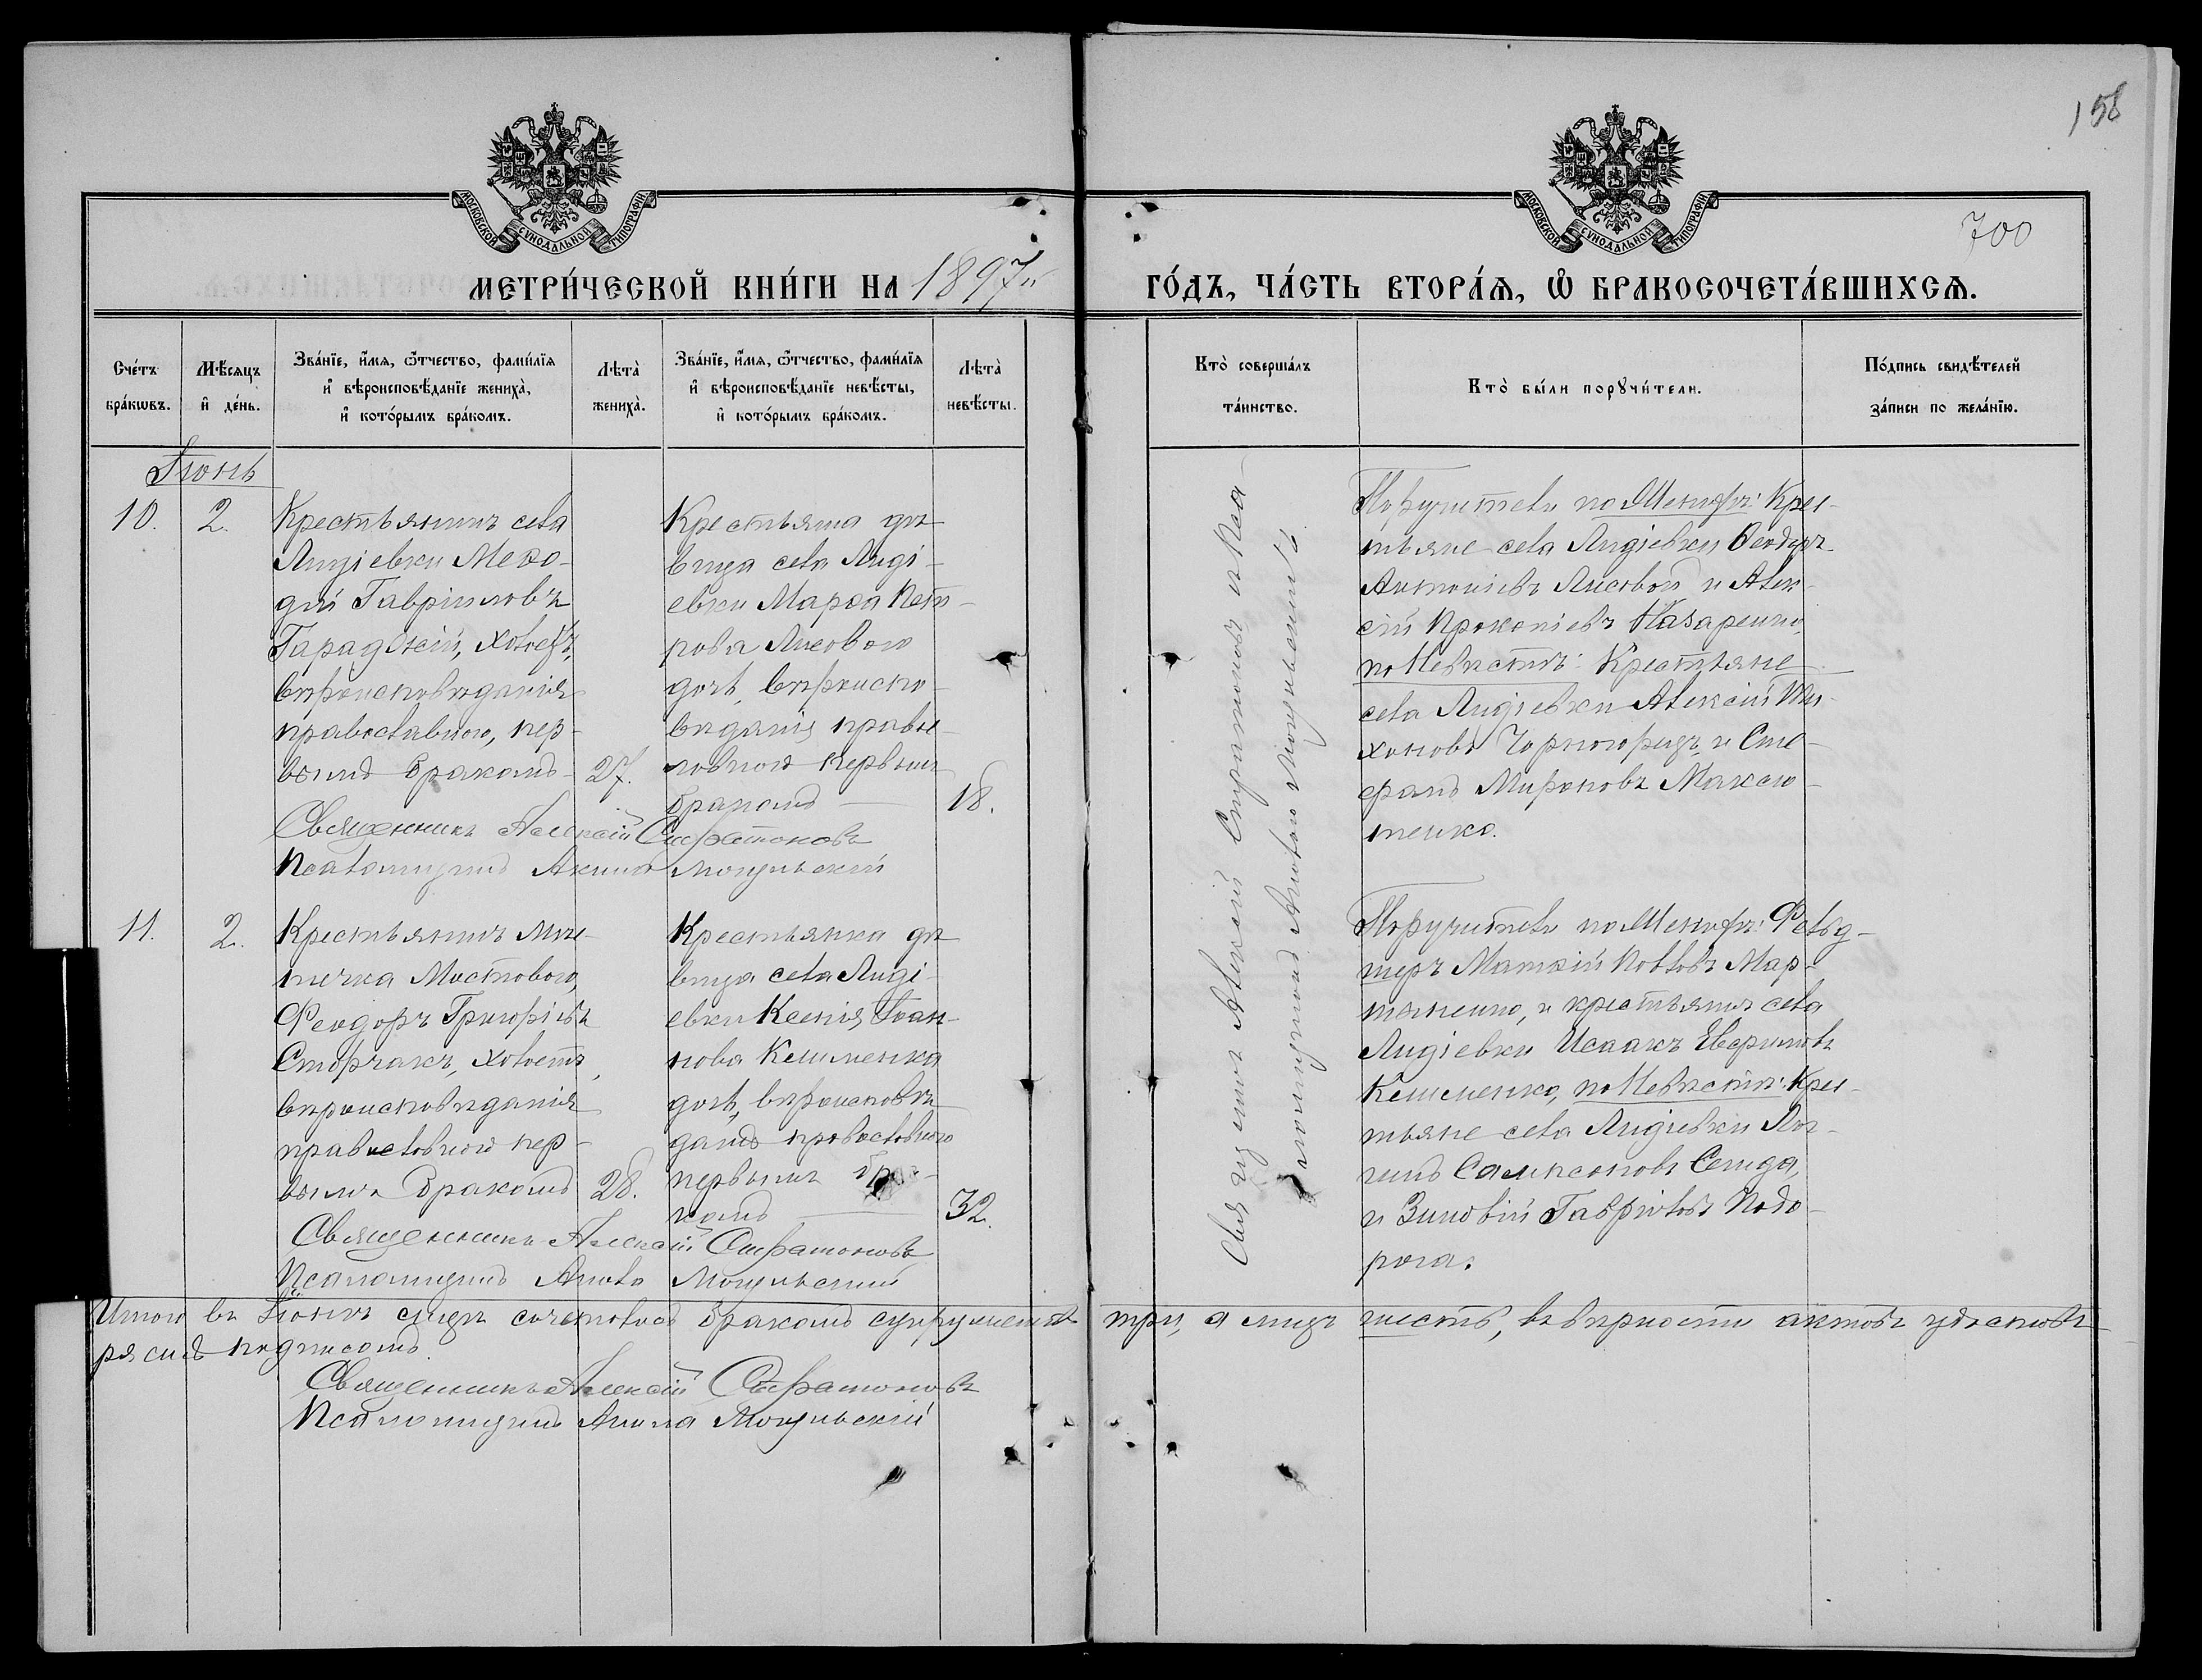 158
700
МОСКОВСКОЙ СУНОДАЛЬНОЙ ТИПОГРАФІИ
МОСКОВСКОЙ СУНОДАЛЬНОЙ ТИПОГРАФІИ
МЕТРИ́ЧЕСКОЙ КНИ́ГИ НА 1897й
ГО́ДЪ, ЧА́СТЬ ВТОРА́Ѧ, Ѽ БРАКОСОЧЕТА́ВШИХСѦ.
Сче́тъ
бра́кѡвъ.
Мѣ́сяцъ
и҆ де́нь.
Зва́нїе, и҆́мя, ѻ҆́тчество, фами́лїя
и҆ вѣроисповѣ́данїе жениха̀,
и҆ кото́рымъ бра́комъ.
Лѣта̀
жениха̀.
Зва́нїе, и҆́мя, ѻ҆́тчество, фами́лїя
и҆ вѣроисповѣ́данїе невѣ́сты,
и҆ кото́рымъ бра́комъ.
Лѣта̀
невѣ́сты.
Кто̀ соверша́лъ
та́инство.
Кто̀ бы́ли порꙋчи́тели.
По́дпись свидѣ́телей
за́писи по жела́нїю.
Іюнь
10.
2.
Крестьянинъ села
Лидіевки Меѳо-
дій Гавріиловъ
Гарадскій, холостъ,
вѣроисповѣданія
православного, пер-
вымъ бракомъ
27.
Крестьянка дѣ-
вица села Лиді-
евки Марѳа Пет-
рова Лисового
дочь, вѣроиспо-
вѣданія правос-
лавного первымъ
бракомъ
18.
Священникъ Алексій Стратоновъ
Псаломщикъ Акила Могильскій
Поручители по Женихѣ: Крес-
тьяне села Лидіевки Ѳеодоръ
Антоніевъ Лисовой и Алек-
сій Прокопіевъ Назаренко,
по Невѣстѣ: Крестьяне
села Лидіевки Алексій Ти-
хоновъ Чорногорецъ и Сте-
фанъ Мироновъ Максю-
тенко.
Священникъ Алексій Стратоновъ и Пса-
ломщикомъ Акилою Могильскимъ
11.
2.
Крестьянинъ мѣс-
течка Мостового,
Феодоръ Григоріевъ
Сторчакъ, холостъ,
вѣроисповѣданія
православного пер-
вымъ бракомъ
28.
Крестьянка дѣ-
вица села Лиді-
евки Ксенія Іоан-
нова Клименка
дочь, вѣроисповѣ-
данія православного
первымъ бра-
комъ
32.
Священникъ Алексій Стратоновъ
Псаломщикъ Акила Могильскій
Поручители по Женихѣ: Фельд-
шеръ Матѳій Павловъ Мар-
тыненко, и крестьянинъ села
Лидіевки Исаакъ Евфимовъ
Клименко, по Невѣстѣ: Крес-
тьяне села Лидіевки Лог-
гинъ Сампсоновъ
и Зиновій Гавріиловъ Подо-
рога.
Итого въ Іюнѣ сицѣ сочеталось бракомъ супружествъ три, а лицъ шесть, въ вѣрности актовъ удостовѣ-
ряемъ подписомъ.
Священникъ Алексій Стратоновъ
Псаломщикъ Акила Могильскій